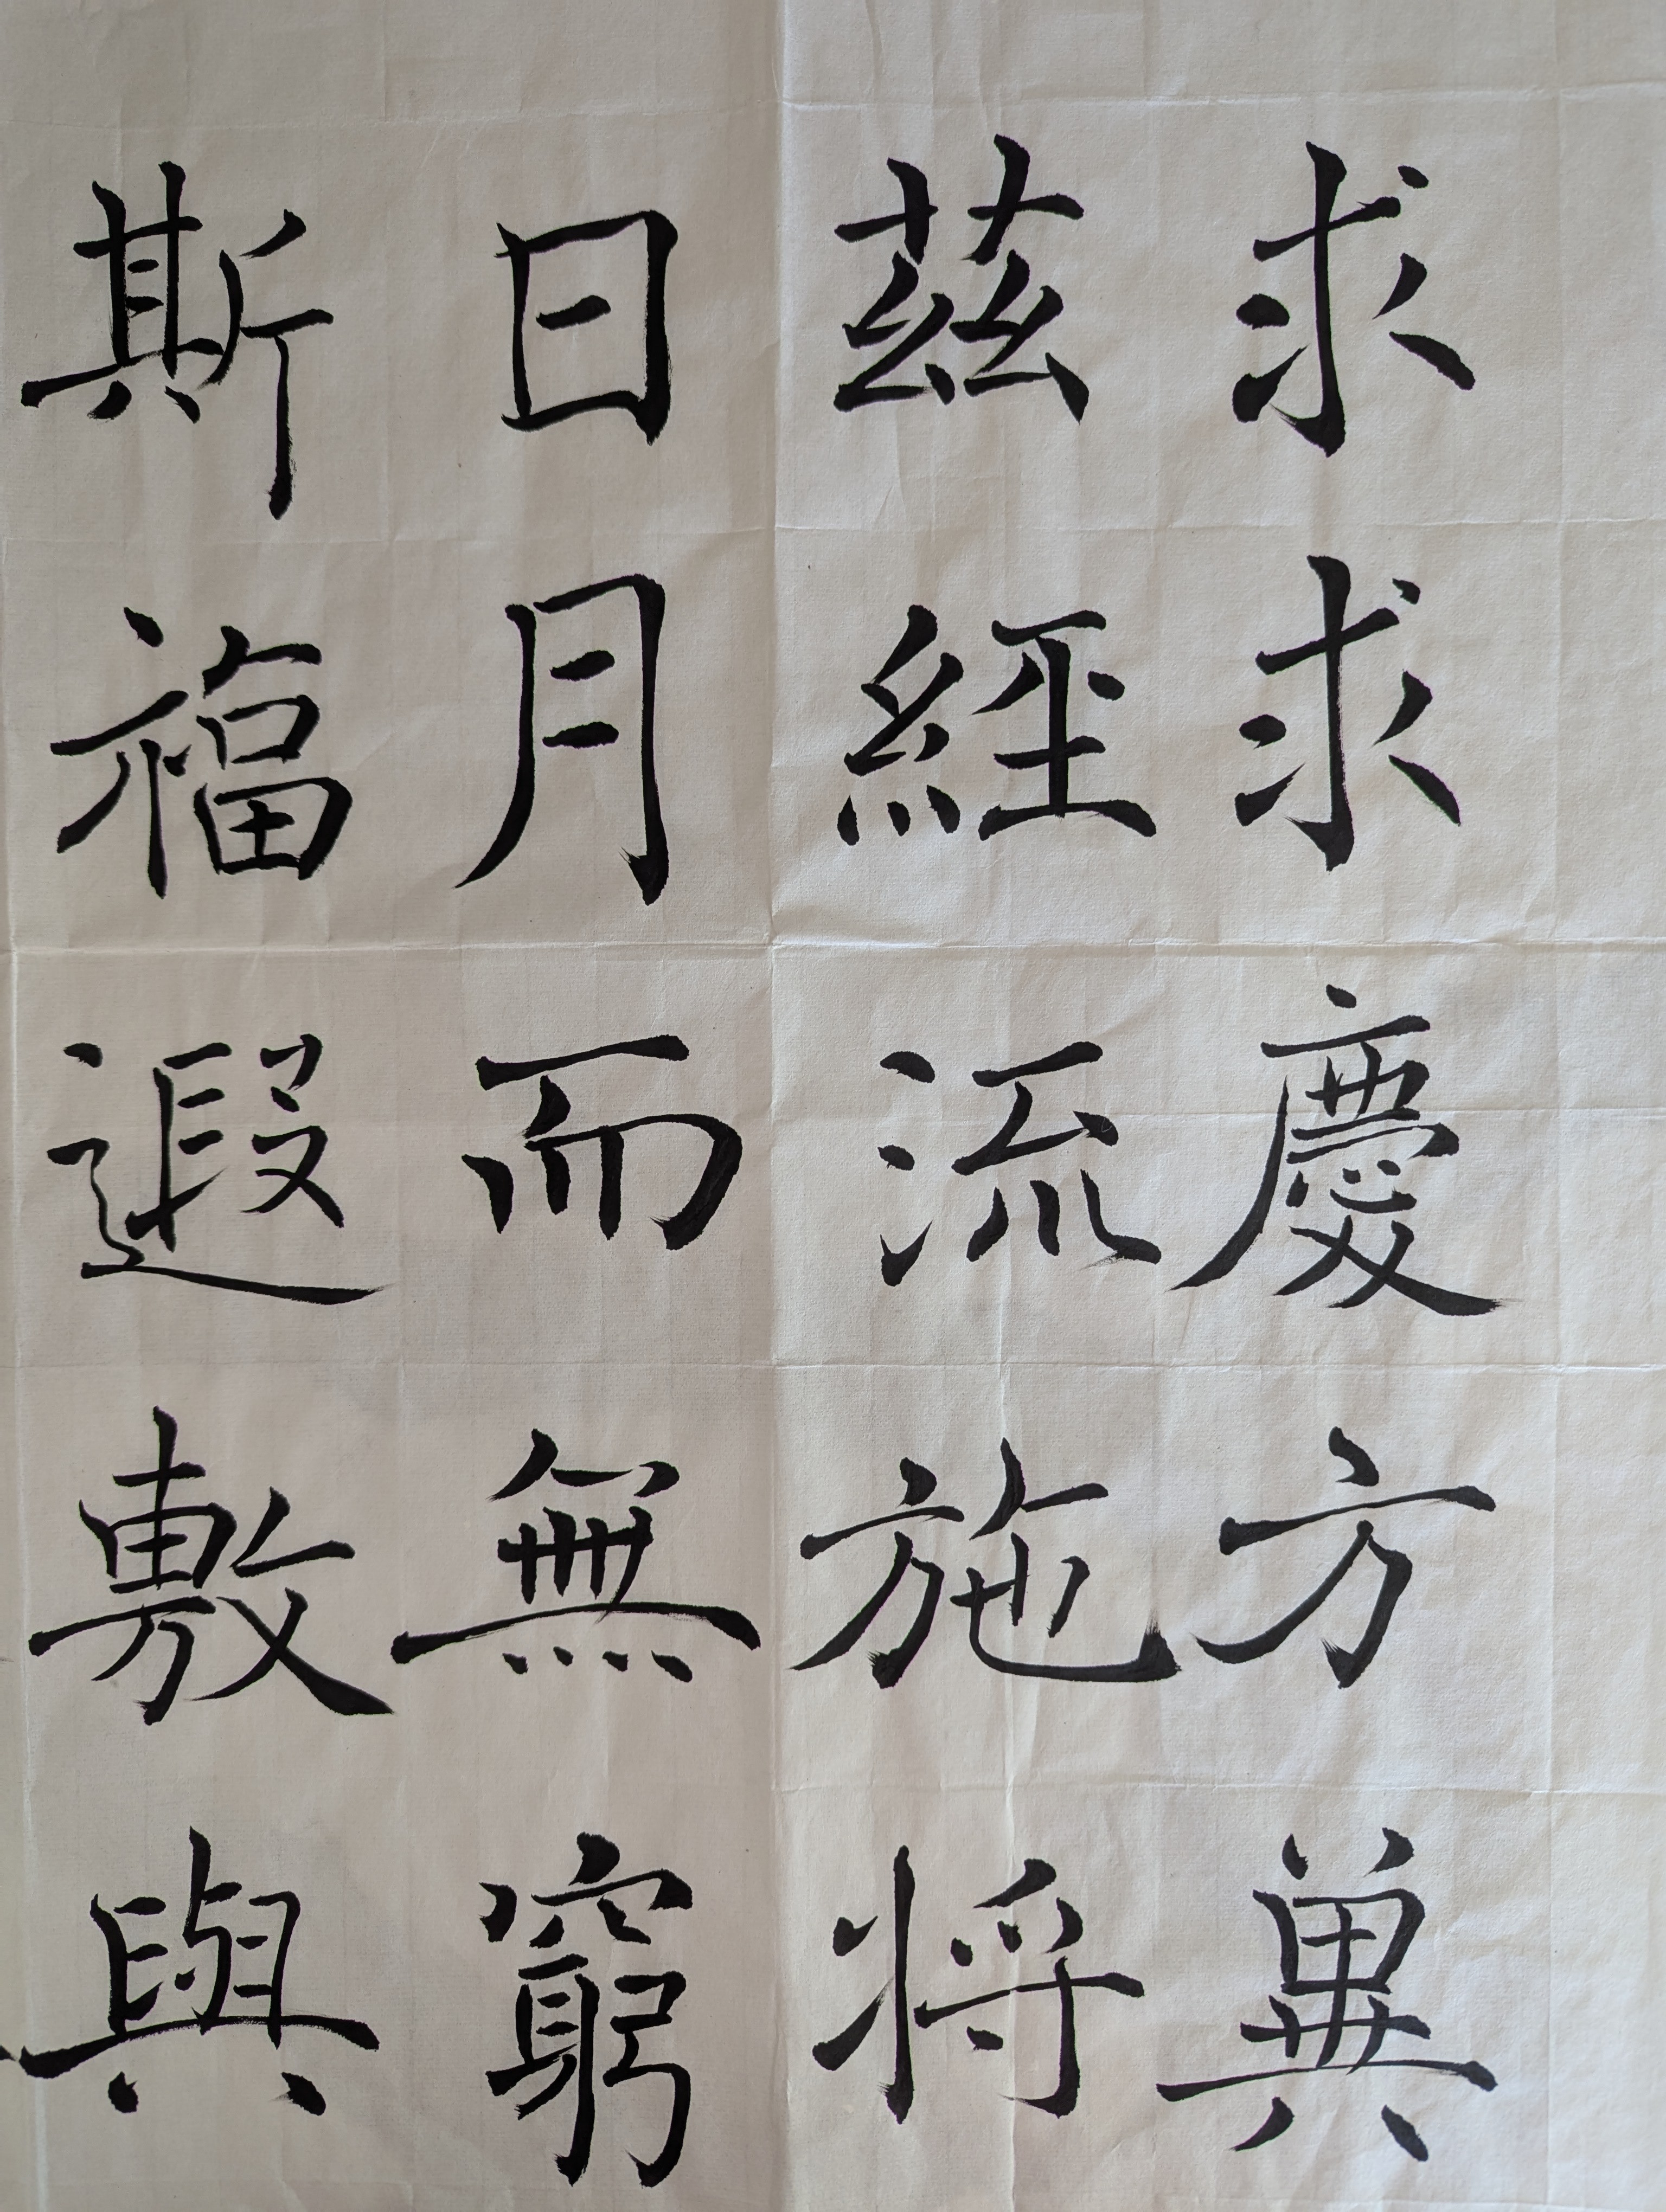 求求慶方冀
茲經流施将
日月而無窮
斯福遐敷與